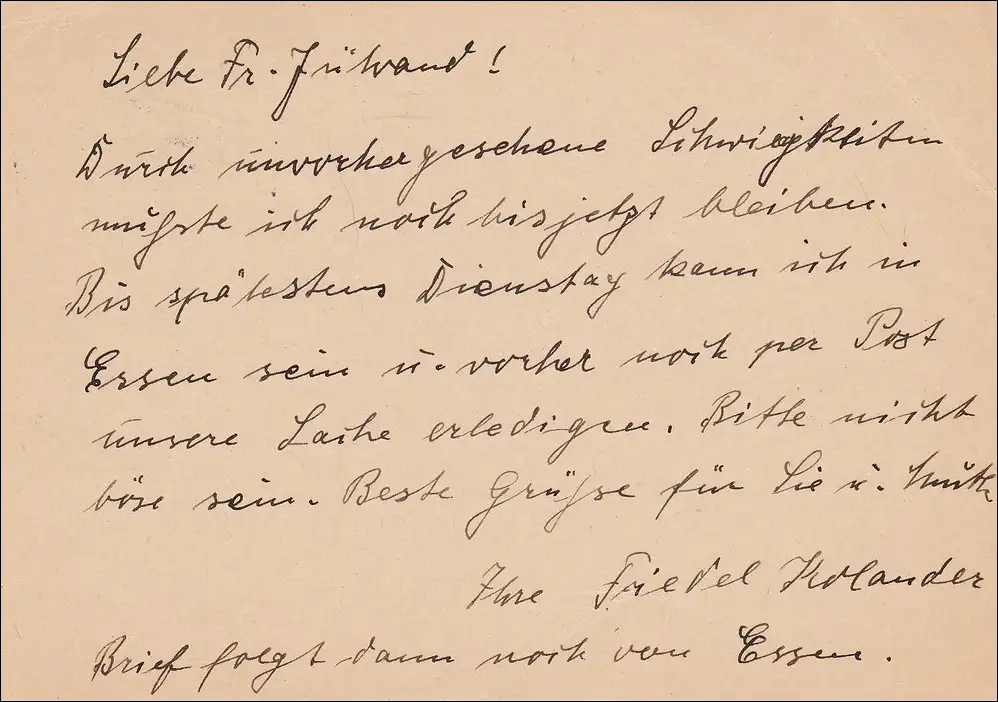 Liebe Fr. Jülvand!
Durch unvorhergesehene
mußte ich noch bis jetzt bleiben.
Bis spätestens Dienstag kann ich in
Essen sein u. vorher noch per Post
unsere Sache erledigen. Bitte nicht
böse sein. Beste Grüße für Sie u.
Ihre Friedel
Brief folgt dann noch von Essen.